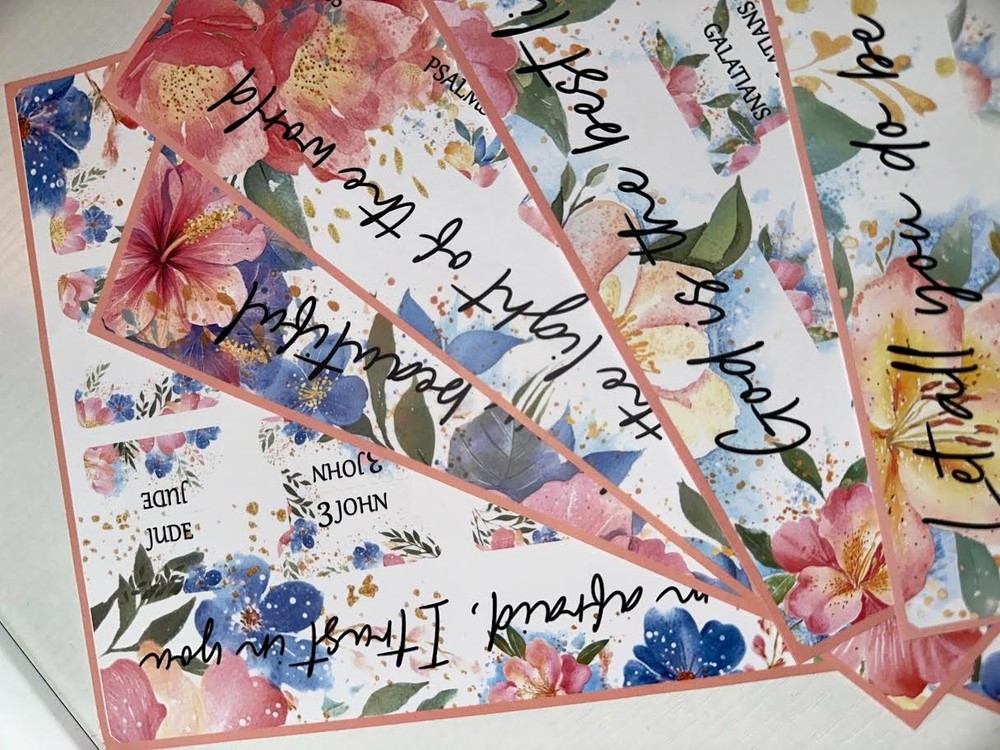 PSALMS
the light of the world
God is the best
GALATIANS
Let all you do be
beautiful
JUDE
JUDE
3 JOHN
3 JOHN
afraid. I trust in you